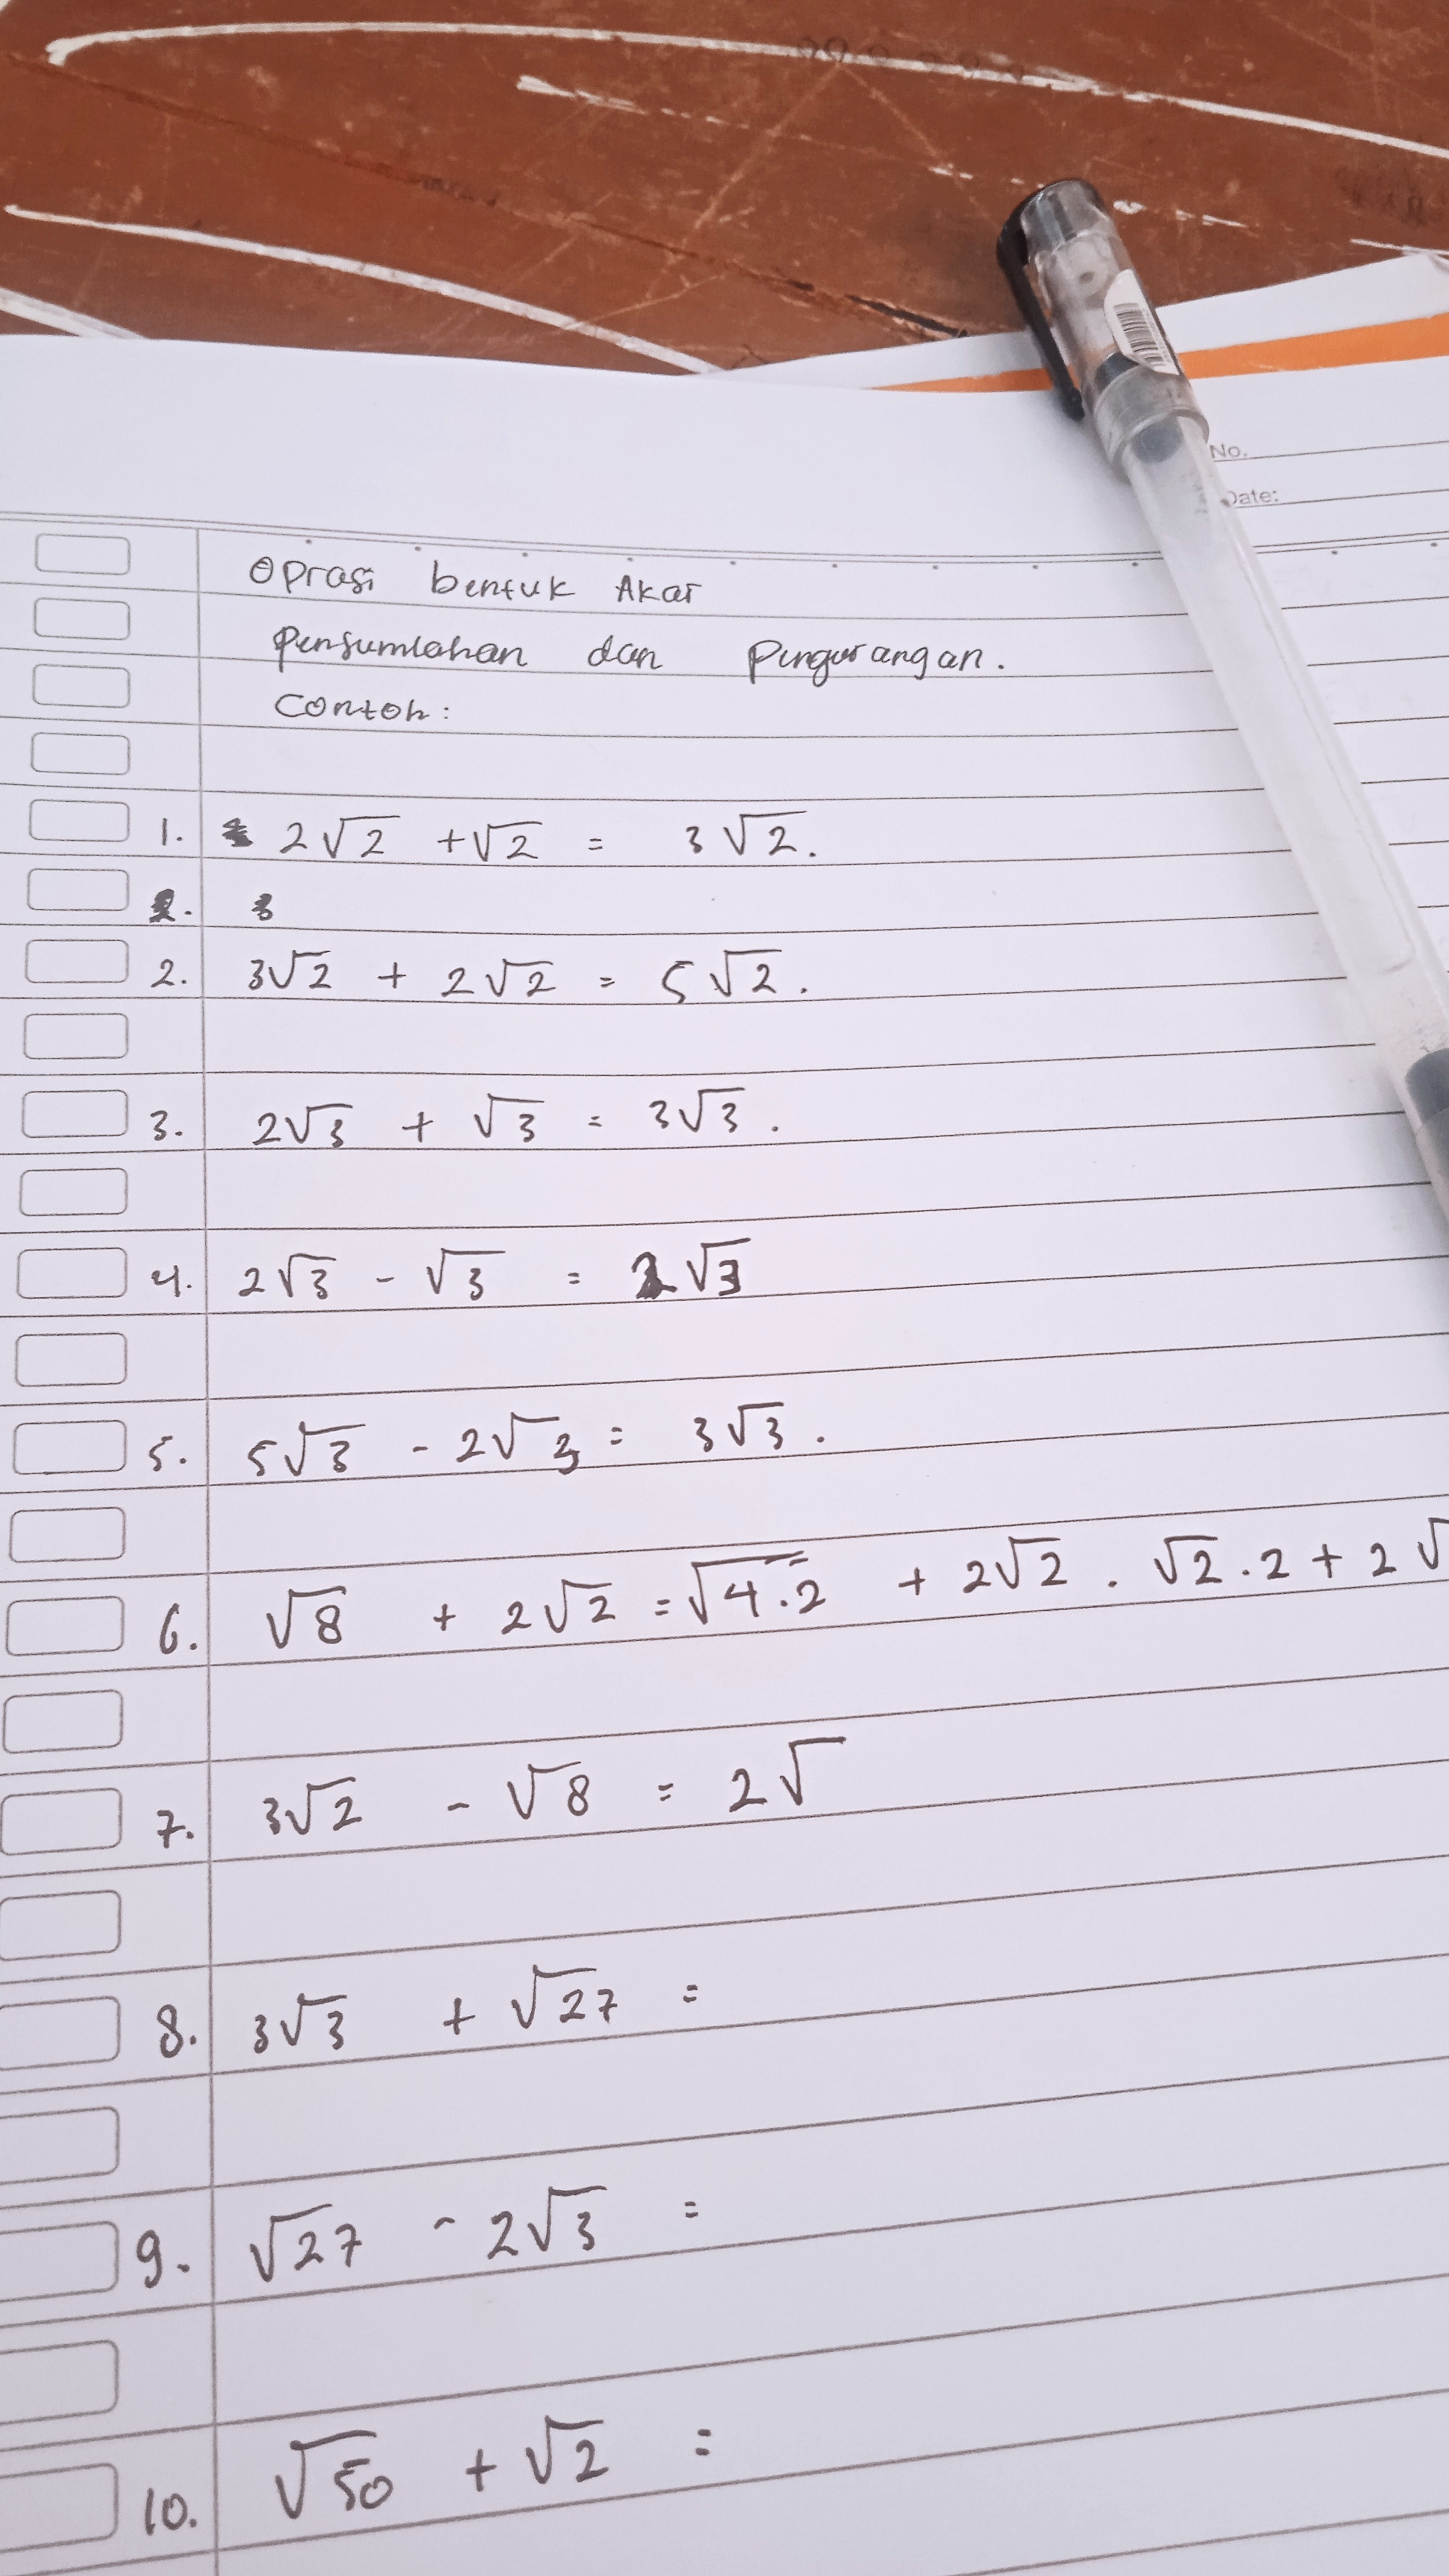 No.
Date:
Oprasi bentuk Akar
Penjumlahan dan Pengurangan.
Contoh:
1. 2√2 + √2 = 3√2.
2. 3√2 + 2√2 = 5√2.
3. 2√3 + √3 = 3√3.
4. 2√3 - √3 = √3
5. 5√3 - 2√3 = 3√3.
6. √8 + 2√2 = √4.2 + 2√2 . √2.2 + 2√
7. 3√2 - √8 = 2√
8. 3√3 + √27 =
9. √27 - 2√3 =
10. √50 + √2 =